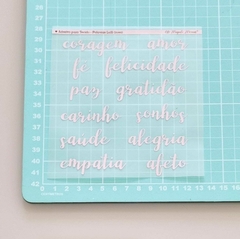 coragem amor
fé felicidade
paz gratidão
carinho sonhos
saúde alegria
empatia afeto
27
28
29
30
31
32
33
34
35
36
37
38
39
40
41
42
0 1 2 3 4 5 6 7 8 9 10 11 12 13 14 15 16 17 18